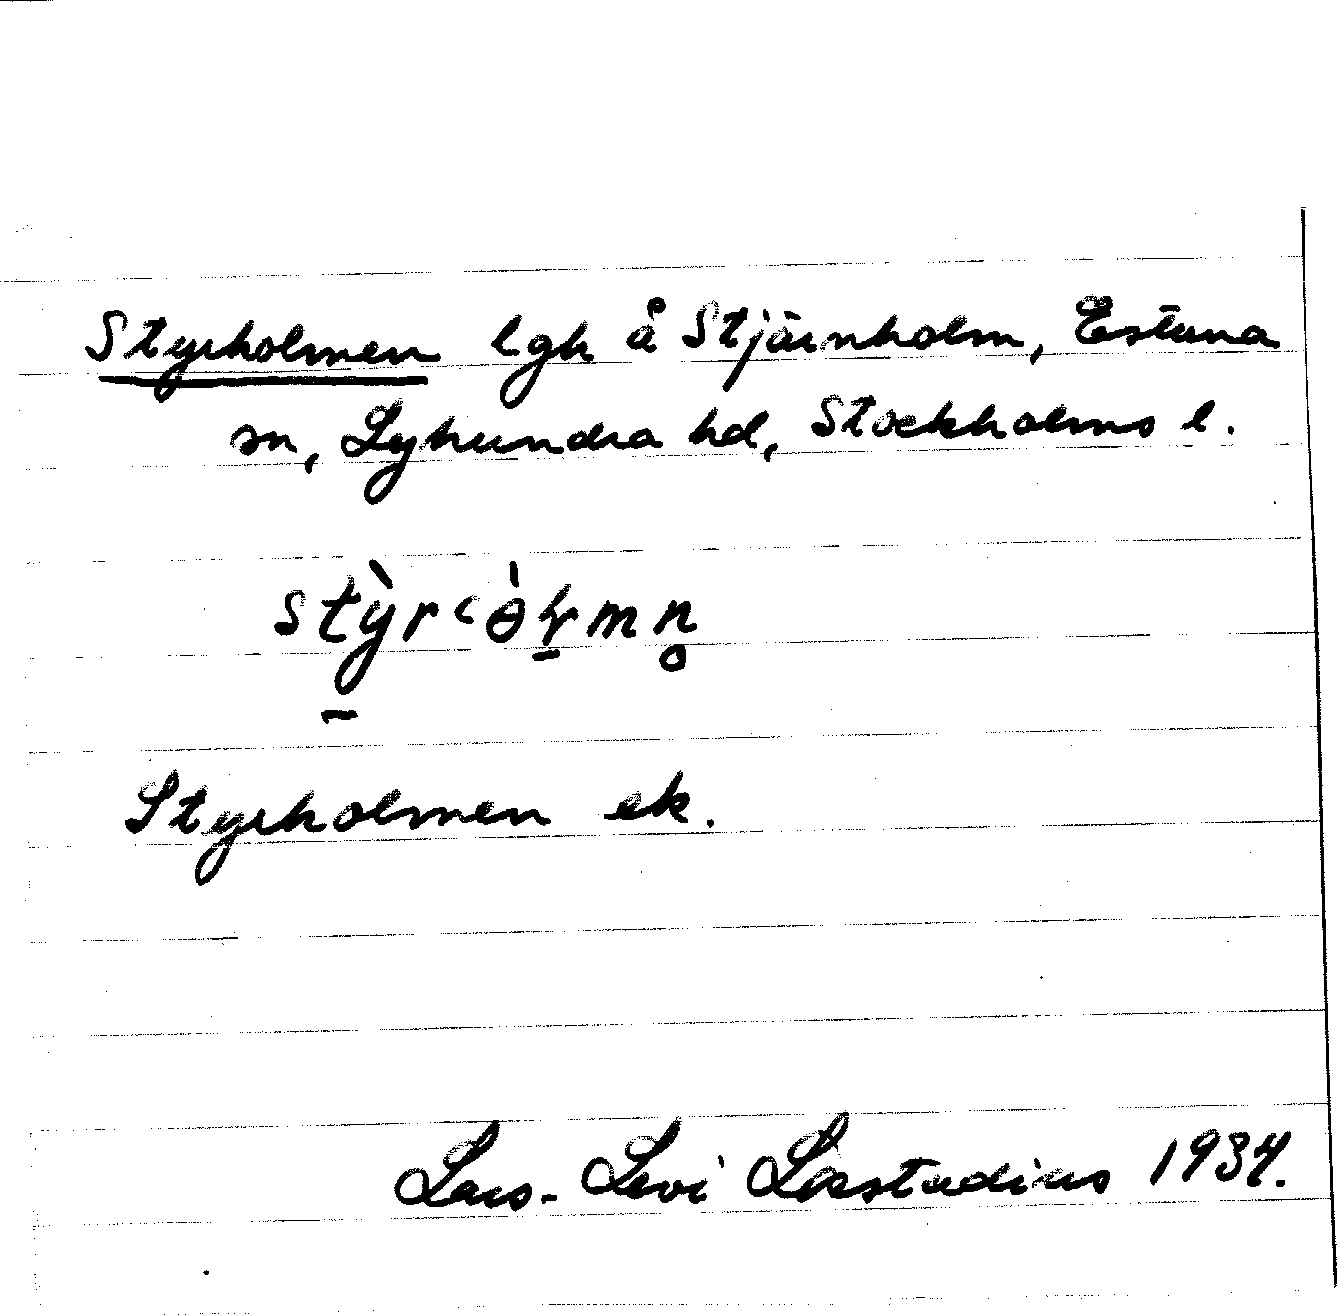 Styrholmen lgh å Stjärnholm, Estuna
sn, Lyhundra hd, Stockholms l.
Styrholmen ek.
Lars-Levi Læstadius 1934.